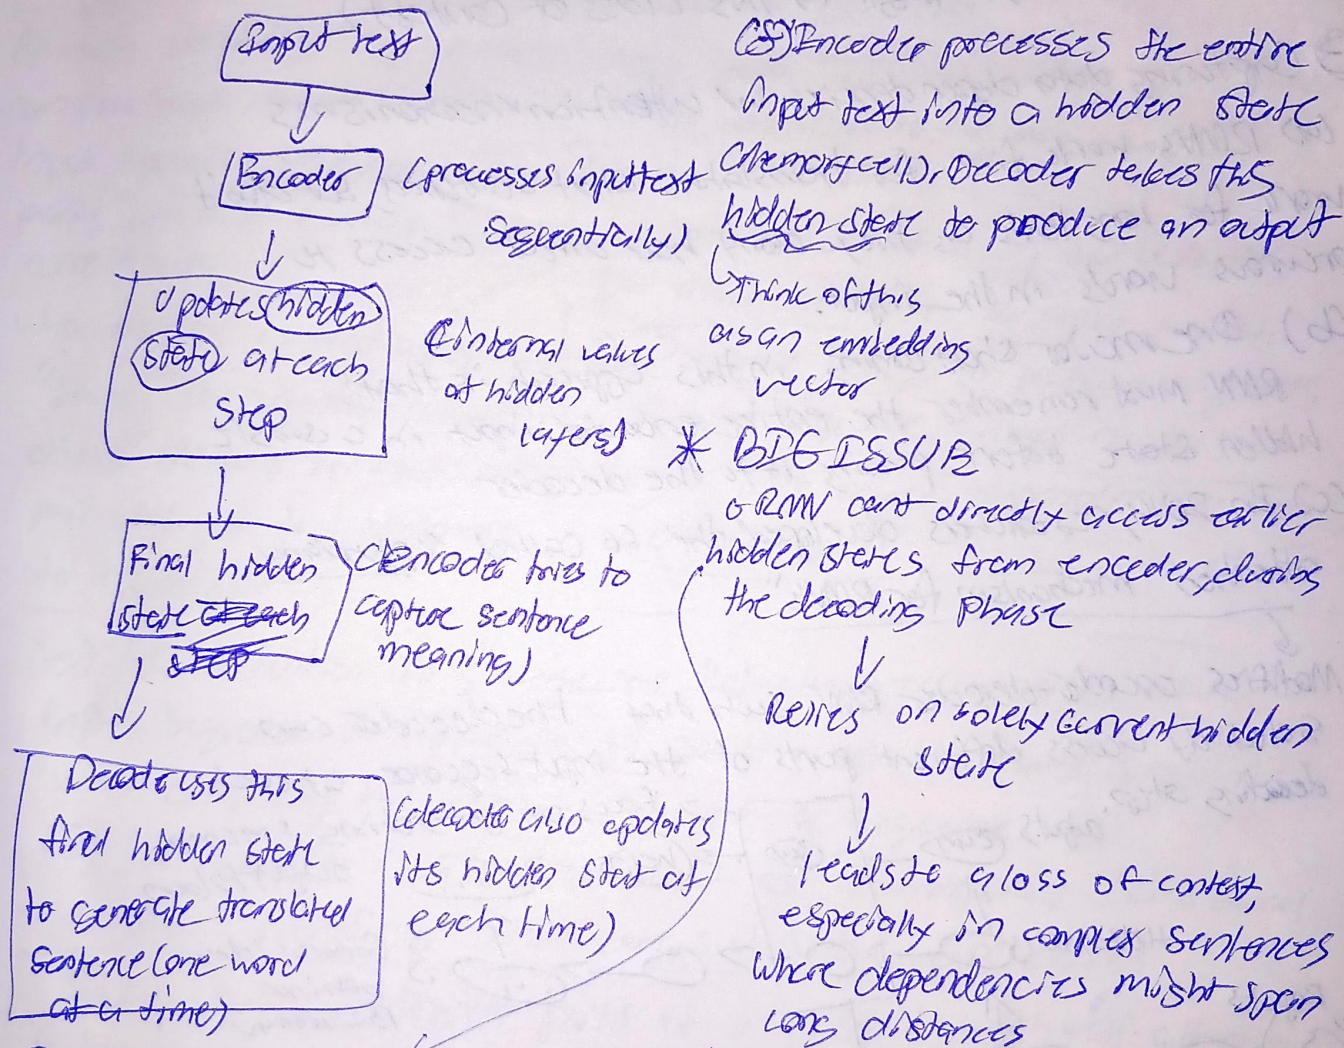 Input text
Encoder
(processes input text
sequentially)
Updates hidden
state at each
step
(internal values
at hidden
layers)
Final hidden
state at each
step
(encoder tries to
capture sentence
meaning)
Decoder uses this
final hidden state
to generate translated
sentence (one word
at a time)
(decoder also updates
its hidden stat at
each time)
Encoder processes the entire
input text into a hidden state
(memory cell). Decoder takes this
hidden state to produce an output
Think of this
as an embedding
vector
* BIG ISSUE
RNN cant directly access earlier
hidden states from encoder, during
the decoding phase
Relies on solely current hidden
state
leads to a loss of context,
especially in complex sentences
where dependencies might span
long distances